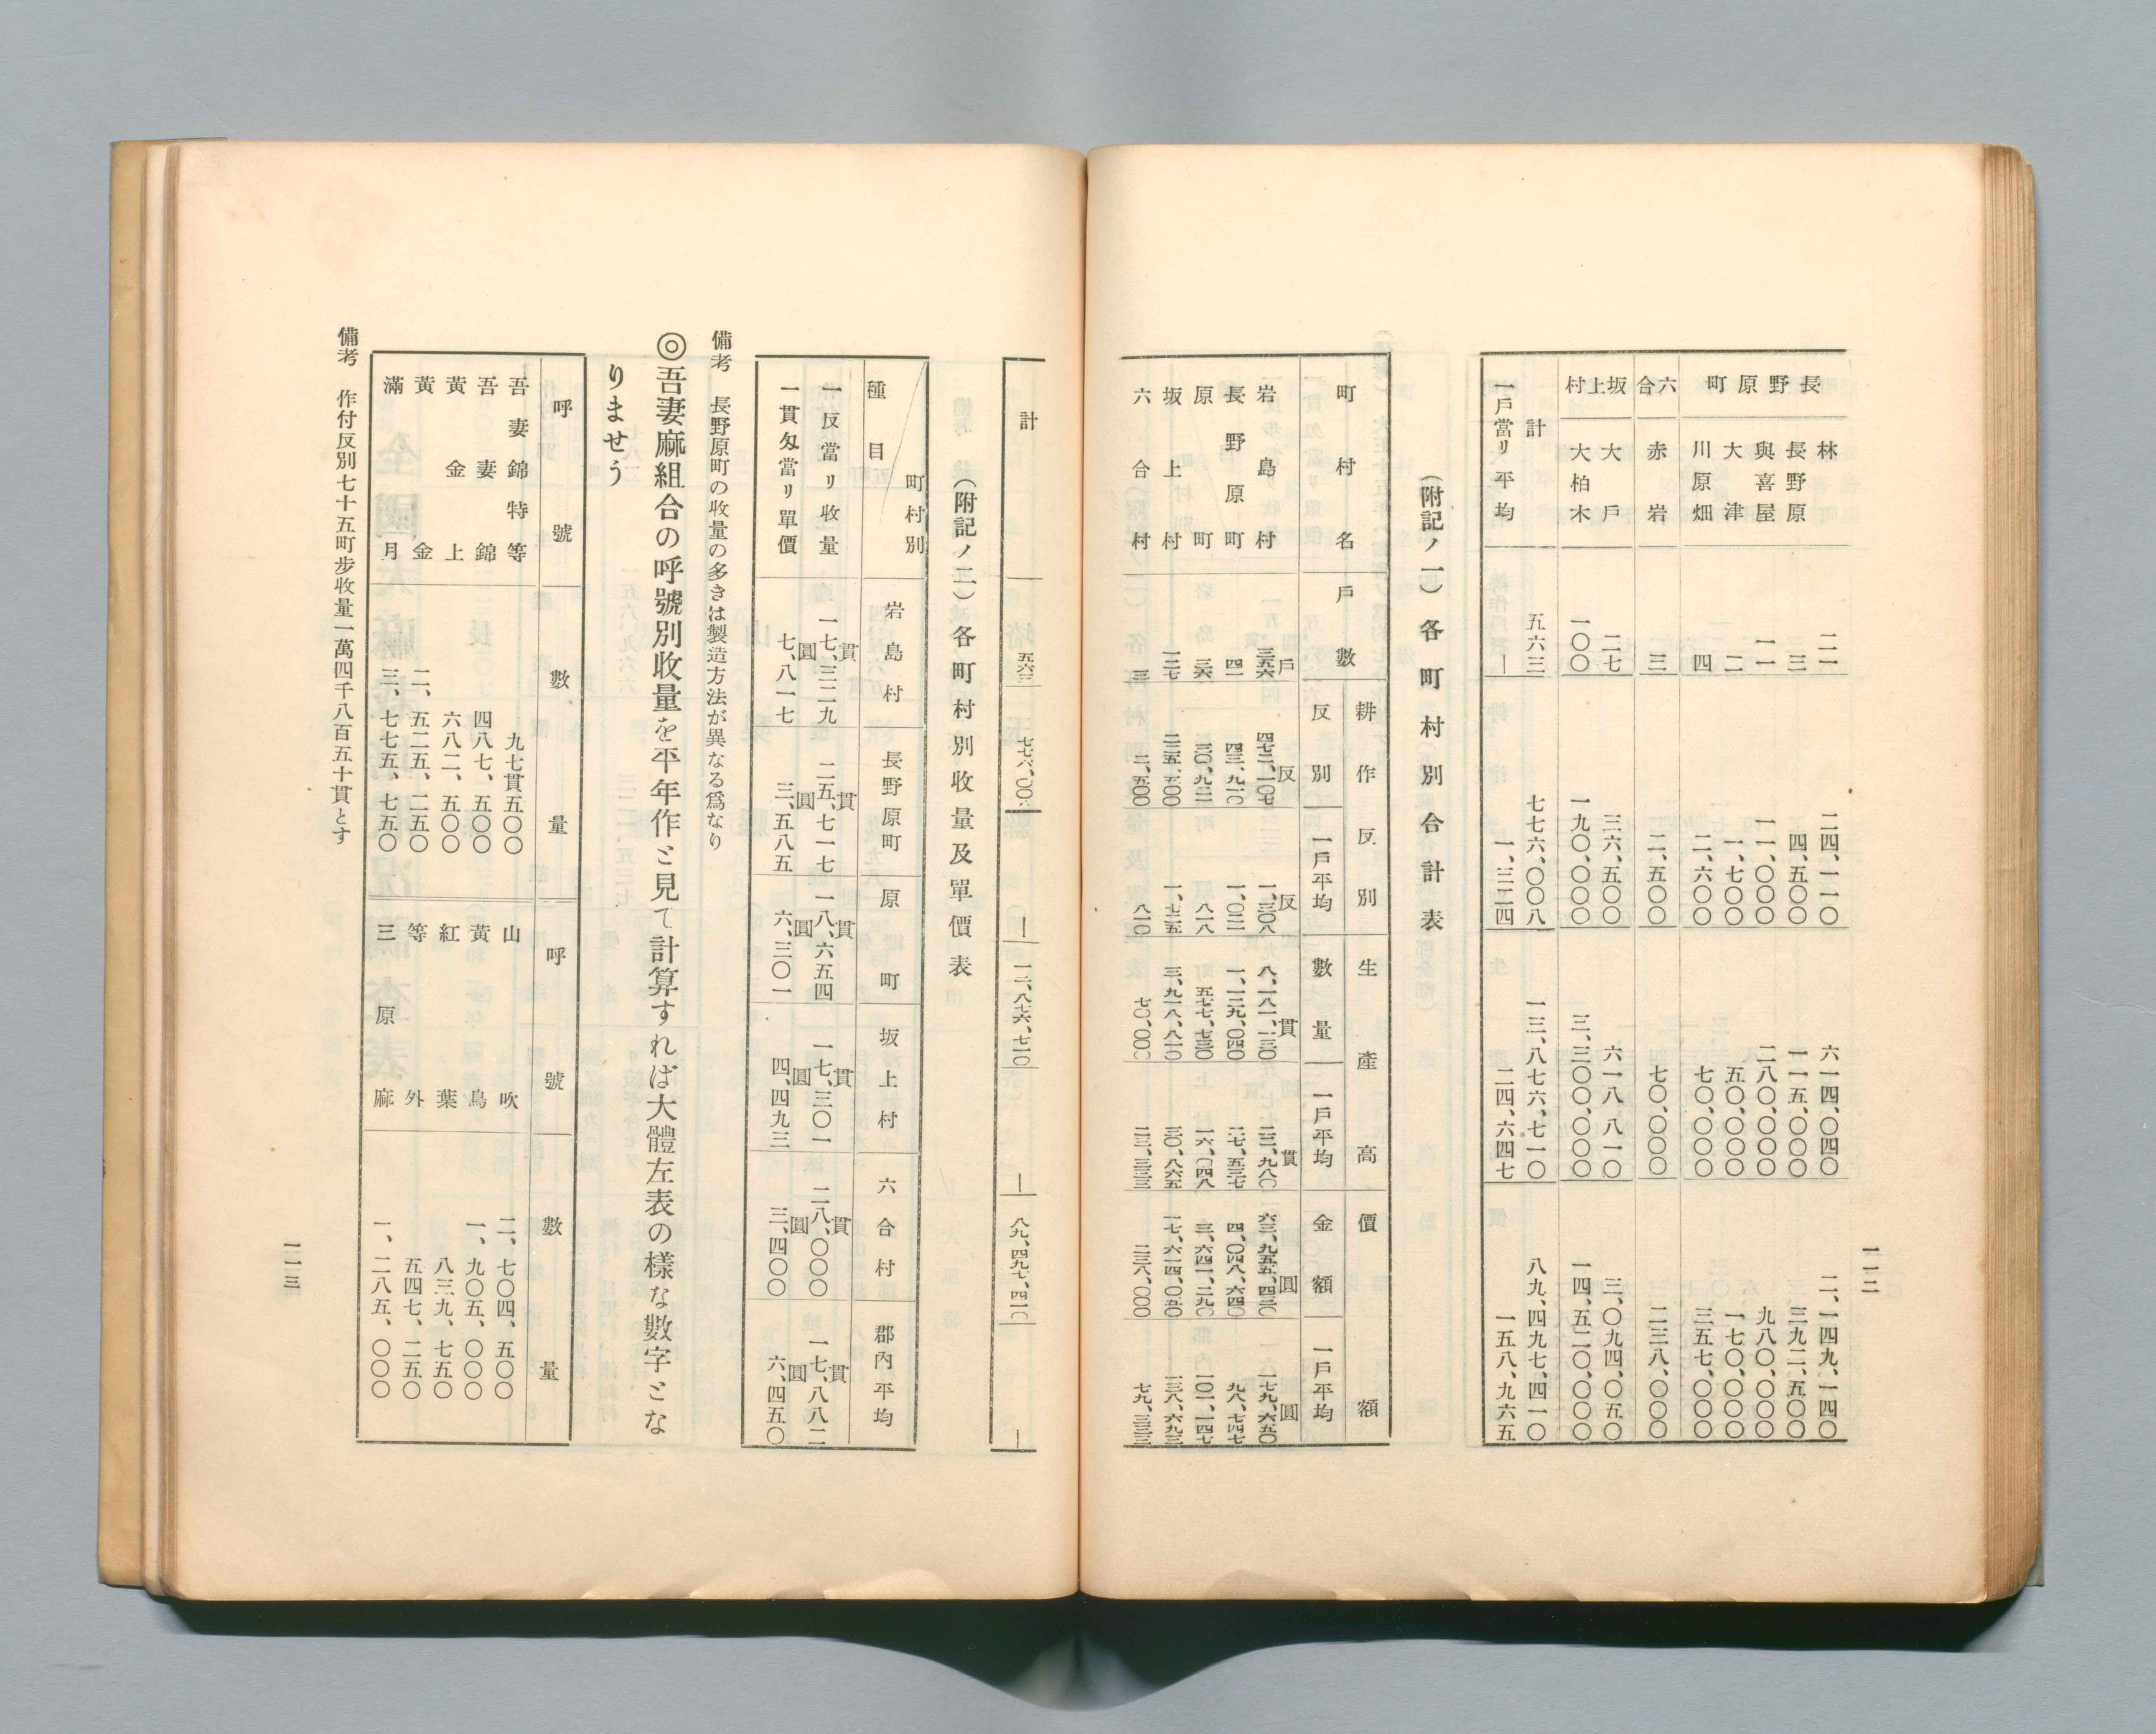 一一二
長野原町
林 二一 二四、一一〇 六一四、〇四〇 二、一四九、一四〇
長野原 三 四、五〇〇 一一五、〇〇〇 三九二、五〇〇
與喜屋 一一 一一、〇〇〇 二八〇、〇〇〇 九八〇、〇〇〇
大津 二 一、七〇〇 五〇、〇〇〇 一七〇、〇〇〇
川原畑 四 二、六〇〇 七〇、〇〇〇 三五七、〇〇〇
六合 赤岩 三 二、五〇〇 七〇、〇〇〇 二三八、〇〇〇
坂上村
大戶 二七 三六、五〇〇 六一八 八一〇 三、〇九四、〇五〇
大柏木 一〇〇 一九〇、〇〇〇 三、三〇〇、〇〇〇 一四、五二〇、〇〇〇
計 五六三 七七六、〇〇八 一三、八七六、七一〇 八九、四九七、四一〇
一戶當リ平均 ― 一、三二四 二四、六四七 一五八、九六五
（附記ノ一）各町村別合計表
町村名 戶數 耕作反別 生產高 價額
反別 一戶平均 數量 一戶平均 金額 一戶平均
戶 反 反 貫 貫 圓 圓
岩島村 三五六 四七二、一〇七 一、三〇八 八、一八一、一三〇 二二、九八〇 六三、九五五、四三〇 一七九、六五〇
長野原町 四一 四三、九一〇 一、〇二一 一、一二九、〇四〇 二七、五三七 四、〇四八、六四〇 九八、七四七
原町 三六 三〇、九二一 八一八 五七七、七三〇 一六、〇四八 三、六四一、二九〇 一〇一、一四七
坂上村 一二七 三、九一八、八一〇 三〇、八六五 一七、六一四、〇五〇 一三八、六九三
六合村 三 二、五〇〇 八一〇 七〇、〇〇〇 二三、三三三 二三八、〇〇〇 七九、三三三
計 五六三 七七六、〇〇 ― 一三、八七六、七一〇 ― 八九、四九七、四一〇 ―
（附記ノ二）各町村別收量及單價表
町村別 種目 岩島村 長野原町 原町 坂上村 六合村 郡內平均
一反當リ收量 一七、三二九貫 二五、七一七貫 一八、六五四貫 一七、三〇一貫 二八、〇〇〇貫 一七、八八二貫
一貫匁當リ單價 七、八一七圓 三、五八五圓 六、三〇一圓 四、四九三圓 三、四〇〇圓 六、四五〇圓
備考 長野原町の收量の多きは製造方法が異なる爲なり
◎吾妻麻組合の呼號別收量を平年作と見て計算すれば大體左表の樣な數字とな
りませう
呼號 數量 呼號 數量
吾妻錦特等 九七貫五〇〇 山吹 二、七〇四、五〇〇
吾妻錦 四八七、五〇〇 黃鳥 一、九〇五、〇〇〇
黃金上 六八二、五〇〇 紅葉 八三九、七五〇
黃金 二、五二五、二五〇 等外 五四七、二五〇
滿月 三、七七五、七五〇 三原麻 一、二八五、〇〇〇
備考 作付反別七十五町步收量一萬四千八百五十貫とす
一一三